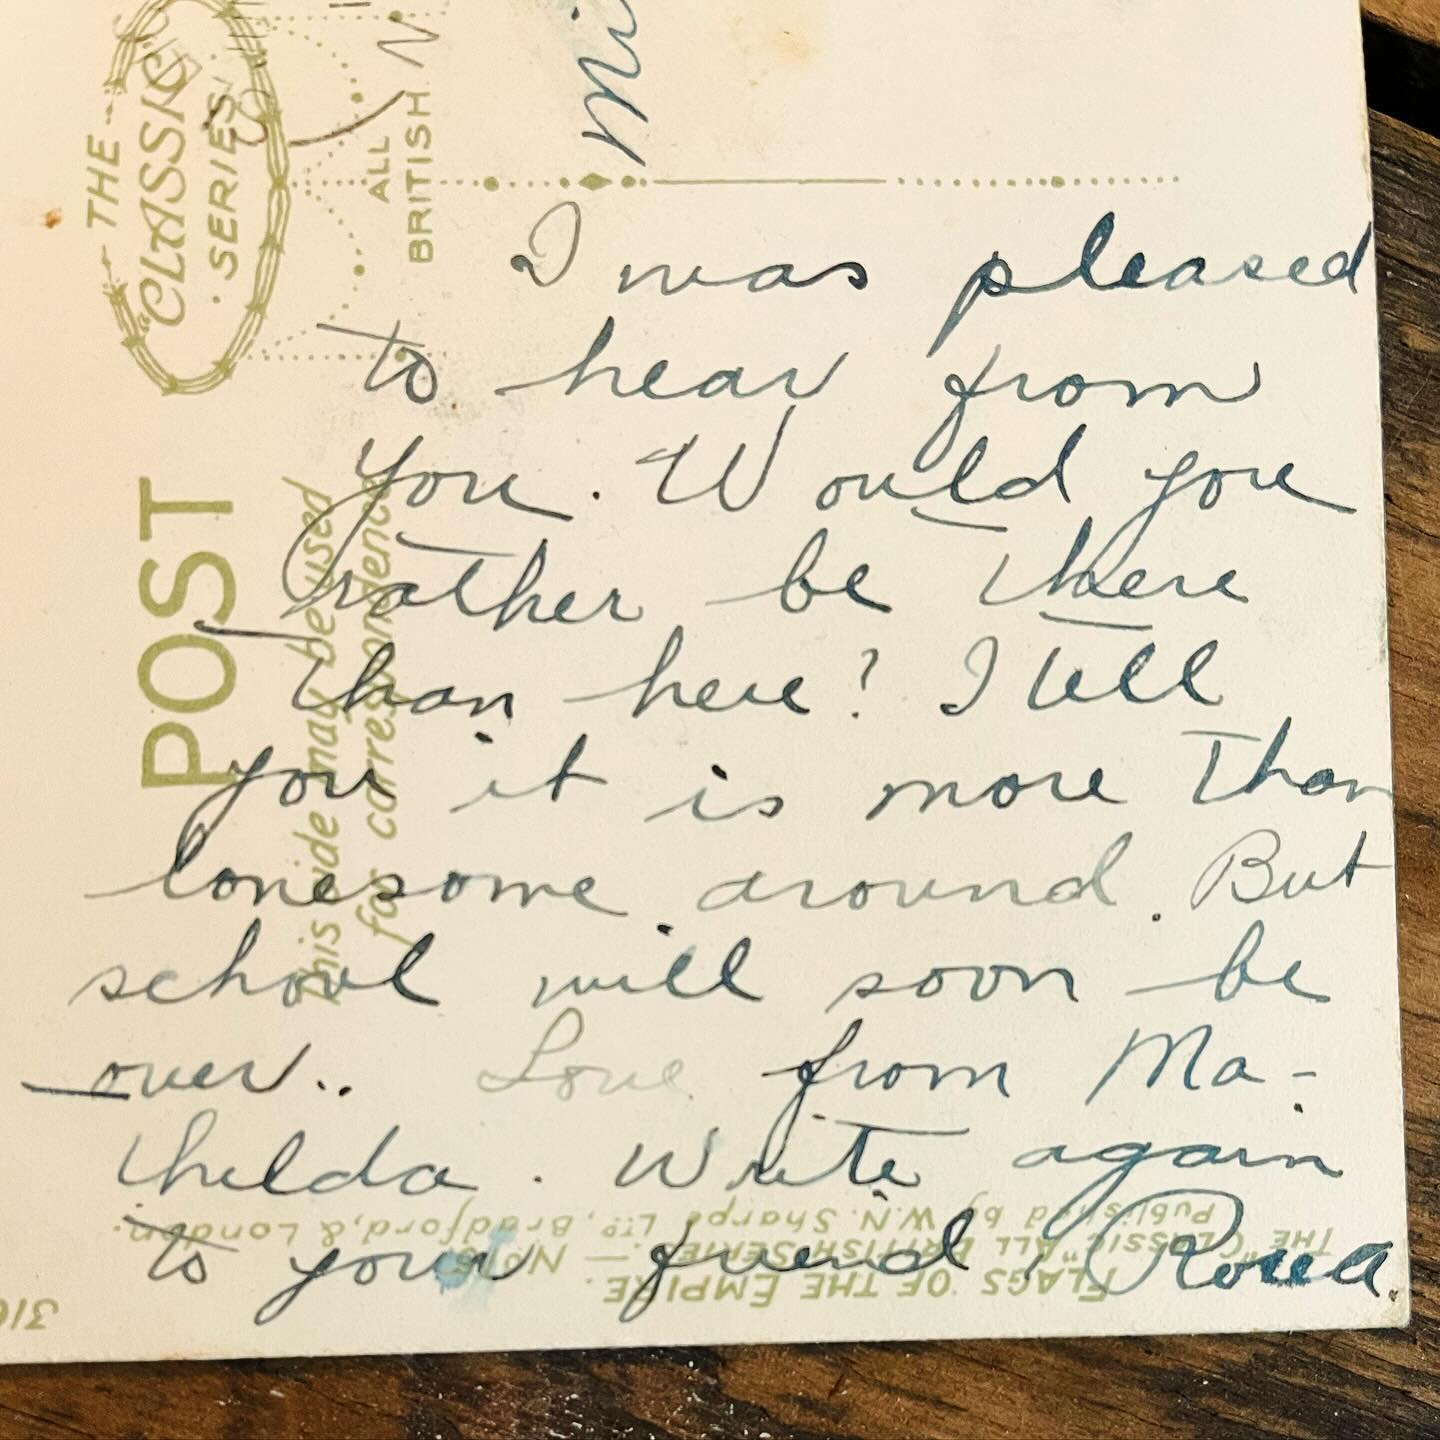 THE
"CLASSIC"
SERIES
ALL
BRITISH
POST
This side may be used
for correspondence
I was pleased
to hear from
you. Would you
rather be there
than here? I tell
you it is more than
lonesome around. But
school will soon be
over.. Love from Ma-
thilda. Write again
to your friend.
FLAGS OF THE EMPIRE. — No 16
THE "CLASSIC" ALL BRITISH SERIES.
Published by W.N. Sharpe LTD, Bradford, & London.
316